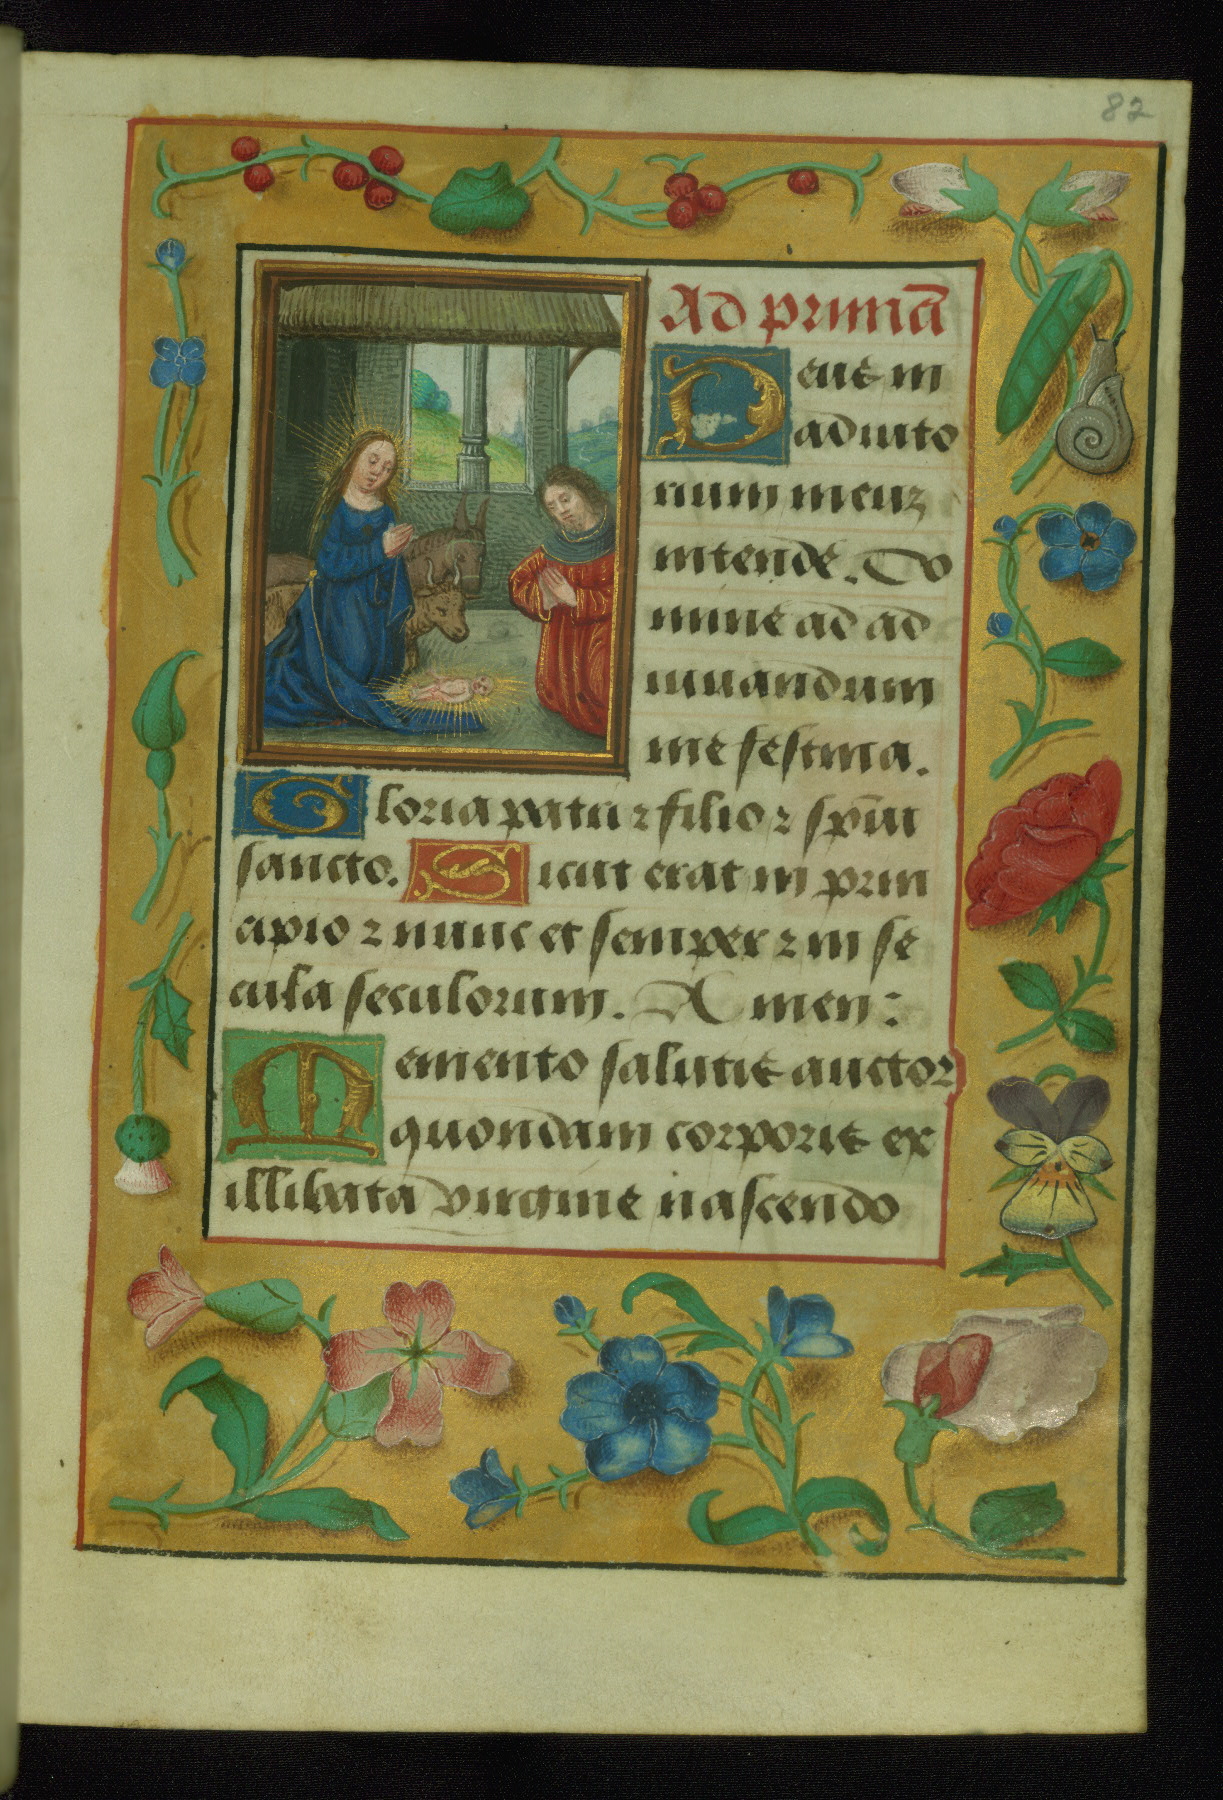 82
Ad primā
Deus in
adiuto
rium meuz
intende. Do
mine ad ad
iuuandum
me festina.
Gloria patri ⁊ filio ⁊ sp̄iui
sancto. Sicut erat in prin
cipio ⁊ nunc et semper ⁊ in se
cula seculorum. Amen:
Memento salutis auctor
quondam corporis ex
illibata virgine nascendo